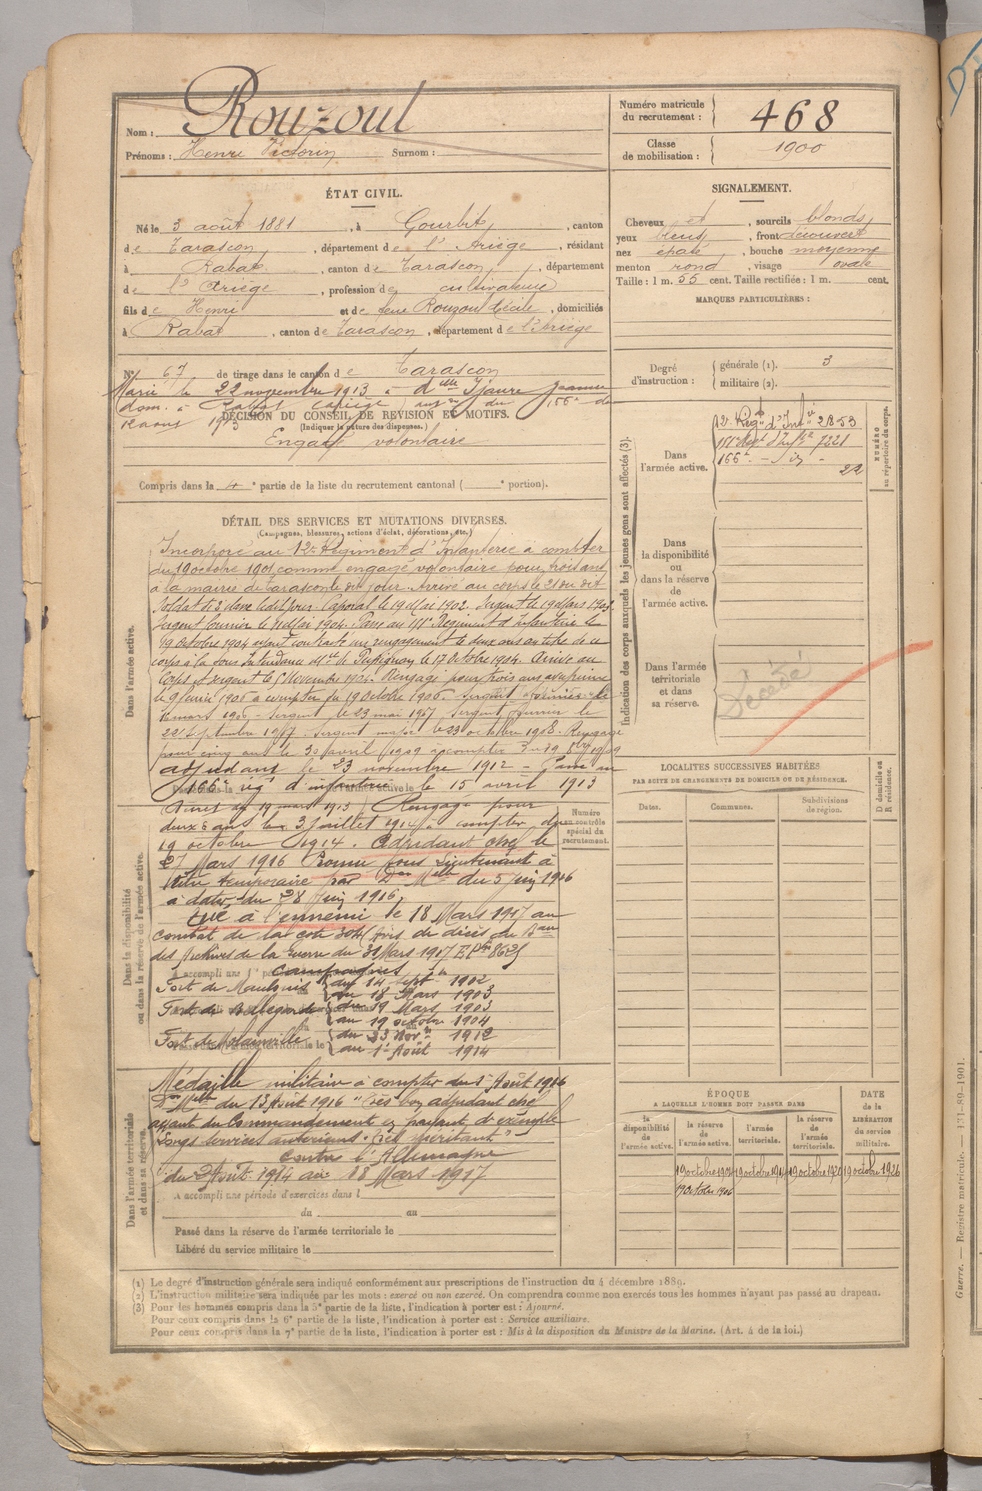 Nom : Rouzoul
Prénoms : Henri Victorin Surnom :
Numéro matricule du recrutement : 468
Classe de mobilisation : 1900
ÉTAT CIVIL.
Né le 3 août 1881, à Gourbit, canton
de Tarascon, département de l'Ariège, résidant
à Rabat, canton de Tarascon, département
de l'Ariège, profession de cultivateur
fils de Henri et de feue Rouzoul Cécile, domiciliés
à Rabat, canton de Tarascon, département de l'Ariège
SIGNALEMENT.
Cheveux et, sourcils blonds,
yeux bleus, front découvert
nez épaté, bouche moyenne
menton rond, visage ovale
Taille : 1 m. 55 cent. Taille rectifiée : 1 m. cent.
MARQUES PARTICULIÈRES :
N° 67 de tirage dans le canton de Tarascon
Marié le 22 novembre 1913 à dlle Jeanne
dom. à Rabat (Ariège) du 166e de
12 août 1913
DÉCISION DU CONSEIL DE REVISION ET MOTIFS.
(Indiquer la nature des dispenses.)
Engagé volontaire
Compris dans la 4e partie de la liste du recrutement cantonal ( e portion).
Degré d'instruction : générale (1). 3
militaire (2).
Indication des corps auxquels les jeunes gens sont affectés (3).
NUMÉRO au répertoire du corps.
Dans l'armée active.
12e Régt d'Infie 2853
111e Régt d'Infie 7221
166e - - 22
Dans la disponibilité ou dans la réserve de l'armée active.
Dans l'armée territoriale et dans sa réserve.
Décédé
DÉTAIL DES SERVICES ET MUTATIONS DIVERSES.
(Campagnes, blessures, actions d'éclat, décorations, etc.)
Dans l'armée active.
Incorporé au 12e Régiment d'Infanterie à compter
du 19 octobre 1901 comme engagé volontaire pour trois ans
à la mairie de Tarascon le dit jour. Arrivé au corps le 21 du dit
Soldat de 2e classe led. jour. Caporal le 19 Mai 1902. Sergent le 19 Mars 1903
Sergent fourrier le Mai 1904. Passé au 111e Régiment d'Infanterie le
19 Octobre 1904 ayant contracté un rengagement de deux ans au titre de ce
corps à la Sous Intendance Mre de Perpignan le 17 Octobre 1904. Arrivé au
Corps Sergent le Novembre 1904. Rengagé pour trois ans
le 9 Janvier 1906 à compter du 19 octobre 1906. Sergent fourrier le
mars 1906 - Sergent le 23 mai 1907 Sergent fourrier le
22 Septembre 1907. Sergent major le 23 octobre 1908. Rengagé
pour cinq ans le 30 avril 1909 à compter du 19 8bre 1909
adjudant le 23 novembre 1912 - Passé au
166e régt d'infanterie le 15 avril 1913
Dans la disponibilité ou dans la réserve de l'armée active.
19 mars 1913) Rengagé pour
deux ans le 3 juillet 1914 à compter du
19 octobre 1914. Adjudant chef le
27 Mars 1916 Promu sous Lieutenant à
titre temporaire par Don Mlle du 5 Juin 1916
à dater du 28 Juin 1916,
tué à l'ennemi le 18 Mars 1917 au
combat de la cote 304 (Avis de décès du Bau
des Archives de la Guerre du 31 Mars 1917 E.P. 8625
campagnes
Fort de Maubuis du 14 sept 1902
au 18 Mars 1903
Fort de Bellegarde du 19 Mars 1903
au 19 octobre 1904
Fort de Molainville du 23 Novre 1912
au 1er Août 1914
Numéro au contrôle spécial du recrutement.
Dans l'armée territoriale et dans sa réserve.
Médaille militaire à compter du 5 Août 1916
Don Mlle du 13 Août 1916 "Très bon adjudant chef
ayant du commandement et payant d'exemple
Longs services antérieurs. Très méritant"
Contre l'Allemagne
du 2 Août 1914 au 18 Mars 1917
A accompli une période d'exercices dans l
du au
Passé dans la réserve de l'armée territoriale le
Libéré du service militaire le
LOCALITÉS SUCCESSIVES HABITÉES
PAR SUITE DE CHANGEMENTS DE DOMICILE OU DE RÉSIDENCE.
Dates. Communes. Subdivisions de région. D domicile ou R résidence.
ÉPOQUE
A LAQUELLE L'HOMME DOIT PASSER DANS
DATE de la LIBÉRATION du service militaire.
la disponibilité de l'armée active. la réserve de l'armée active. l'armée territoriale. la réserve de l'armée territoriale.
19 octobre 1904 19 octobre 1914 19 octobre 1920 19 octobre 1926
19 octobre 1906
(1) Le degré d'instruction générale sera indiqué conformément aux prescriptions de l'instruction du 4 décembre 1889.
(2) L'instruction militaire sera indiquée par les mots : exercé ou non exercé. On comprendra comme non exercés tous les hommes n'ayant pas passé au drapeau.
(3) Pour les hommes compris dans la 5e partie de la liste, l'indication à porter est : Ajourné.
Pour ceux compris dans la 6e partie de la liste, l'indication à porter est : Service auxiliaire.
Pour ceux compris dans la 7e partie de la liste, l'indication à porter est : Mis à la disposition du Ministre de la Marine. (Art. 4 de la loi.)
Guerre. — Registre matricule. — 131-89-1901.